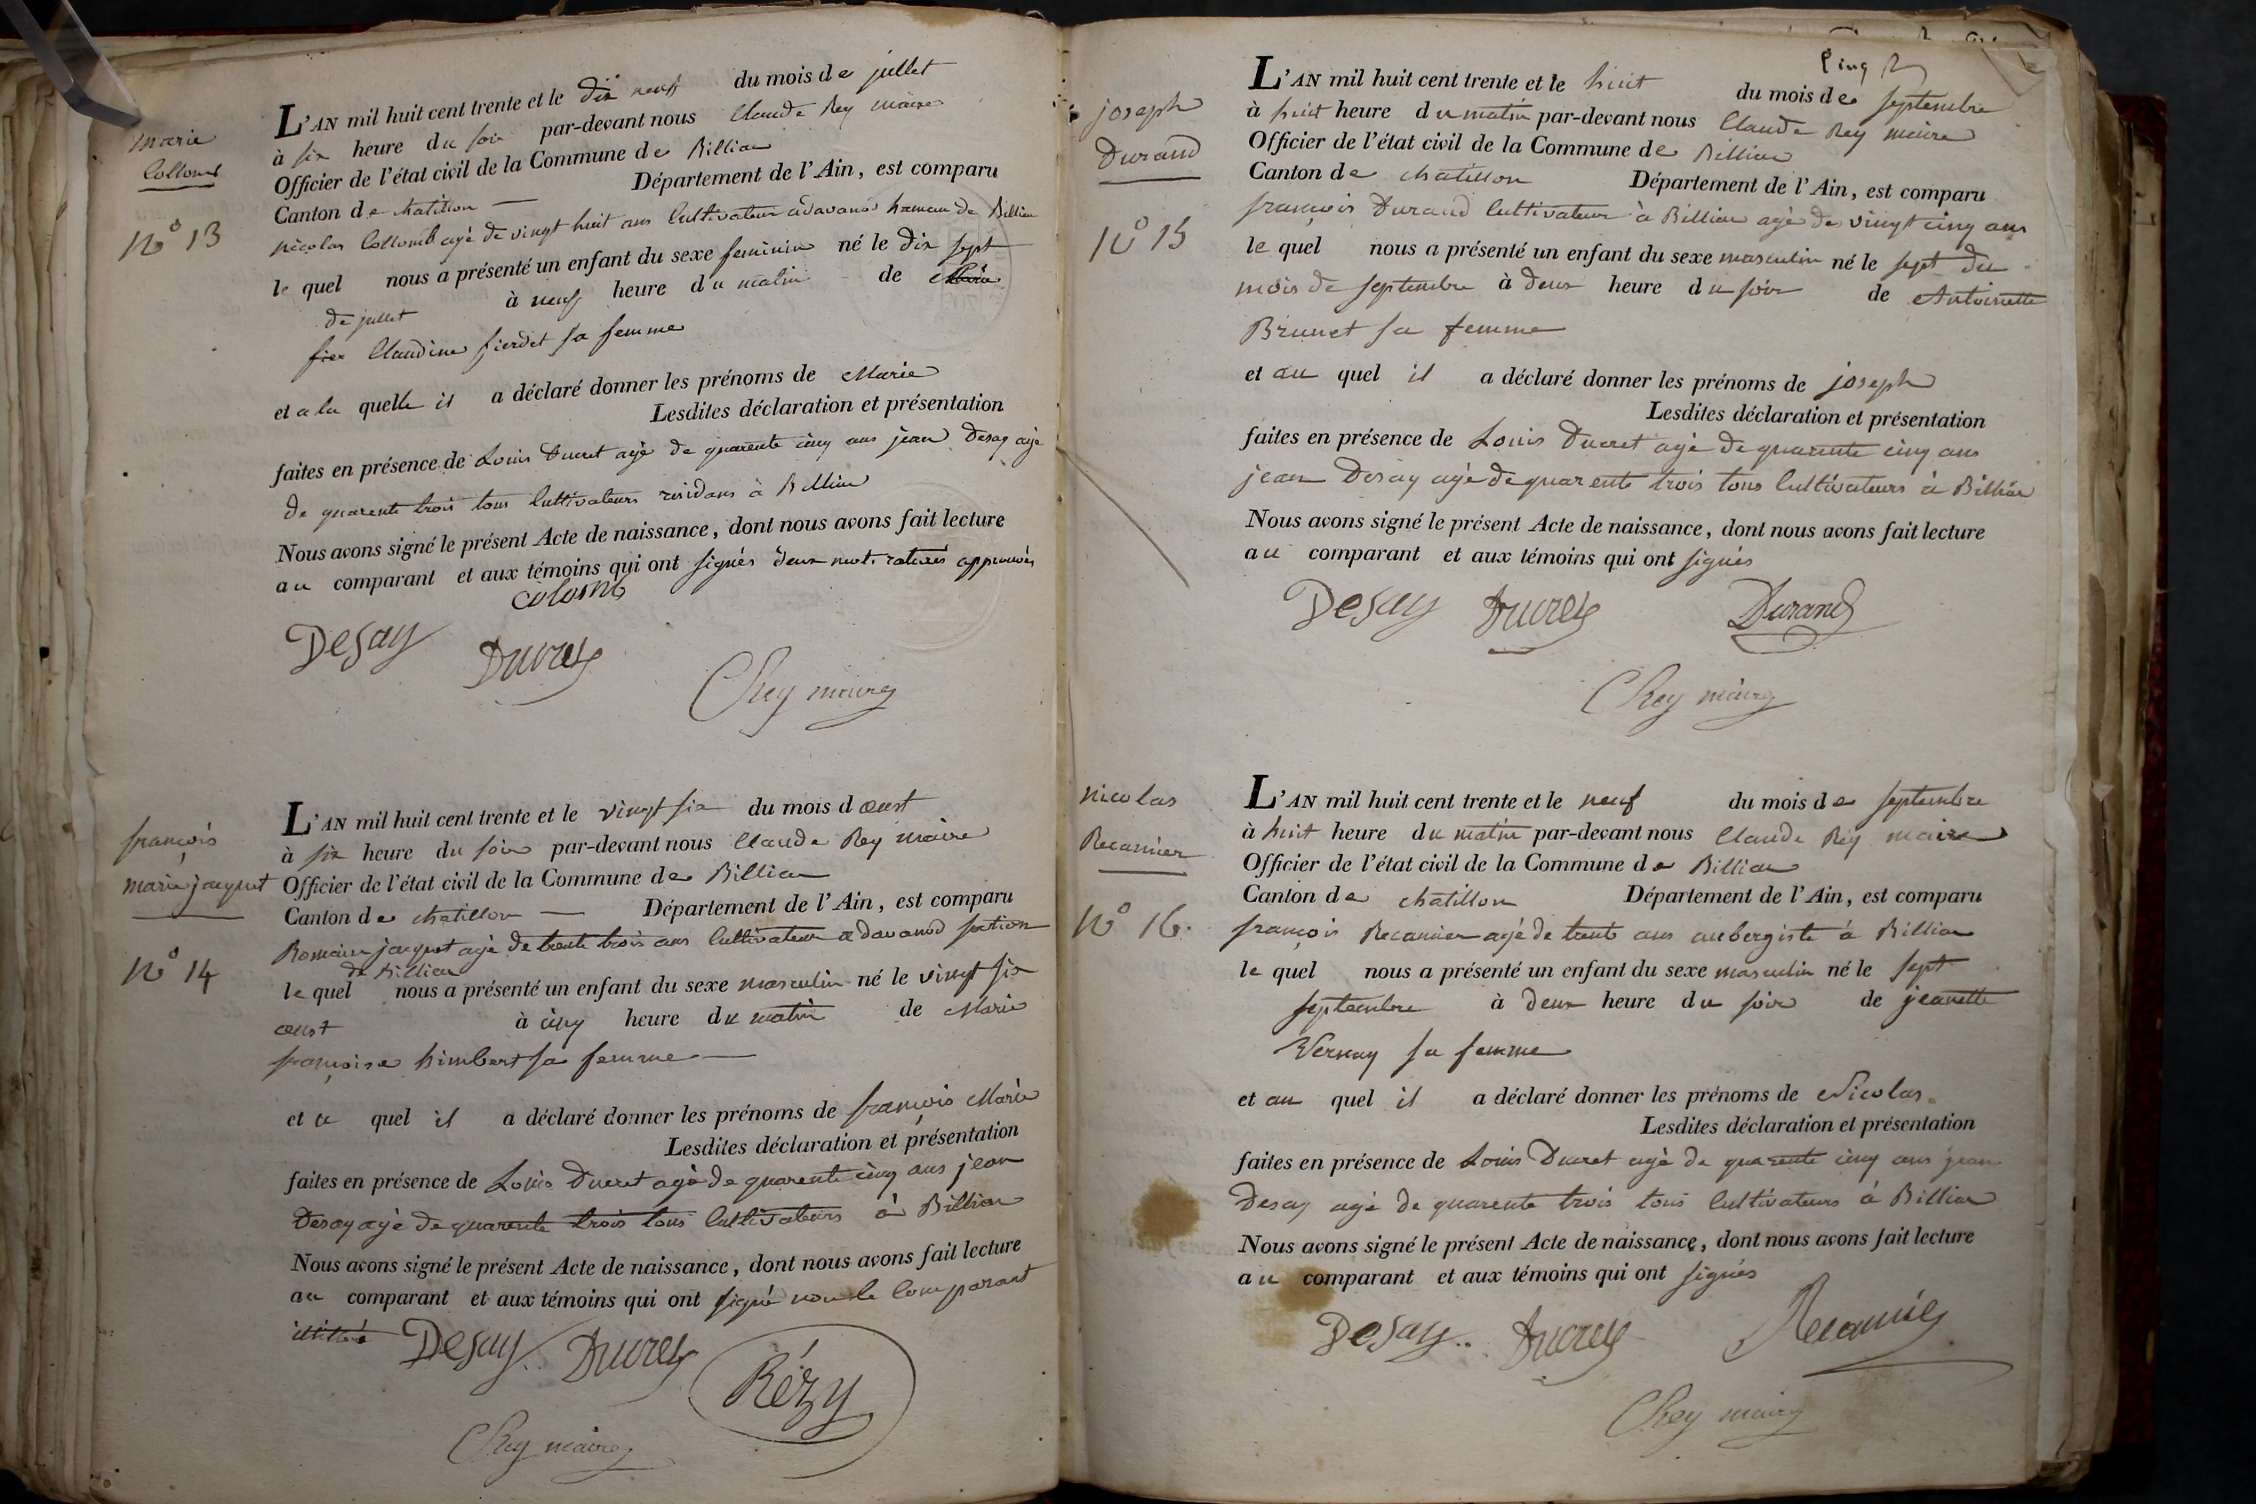 marie
Collomb
N° 13
L'AN mil huit cent trente et le dix neuf du mois de juillet
à six heure du soir par-devant nous Claude Rey maire
Officier de l'état civil de la Commune de Billiau
Canton de chatillon — Département de l'Ain, est comparu
nicolas Collomb agé de vingt huit ans Cultivateur a davanod hameau de Billiau
le quel nous a présenté un enfant du sexe feminin né le dix sept
de juillet à neuf heure du matin de
Claudine fierdet sa femme
et a la quelle il a déclaré donner les prénoms de Marie
Lesdites déclaration et présentation
faites en présence de Louis Ducret agé de quarente cinq ans jean Desay agé
de quarente trois tous Cultivateurs residans à Billiau
Nous avons signé le présent Acte de naissance, dont nous avons fait lecture
au comparant et aux témoins qui ont signés deux mots raturés approuvés
colomb
Desay Ducret
C Rey maire
françois
marie jacquet
N° 14
L'AN mil huit cent trente et le vingt six du mois d aoust
à six heure du soir par-devant nous Claude Rey maire
Officier de l'état civil de la Commune de Billiau
Canton de chatillon — Département de l'Ain, est comparu
Romain jacquet agé de trente trois ans Cultivateur a davanod section
de Billiau
le quel nous a présenté un enfant du sexe masculin né le vingt six
aoust à cinq heure du matin de Marie
françoise himbert sa femme —
et a quel il a déclaré donner les prénoms de françois Marie
Lesdites déclaration et présentation
faites en présence de Louis Ducret agé de quarente cinq ans jean
Desay agé de quarente trois tous Cultivateurs à Billiau
Nous avons signé le présent Acte de naissance, dont nous avons fait lecture
au comparant et aux témoins qui ont signé non le Comparant
Desay Ducret
Rézy
C Rey maire
joseph
Durand
N° 15
L'AN mil huit cent trente et le huit du mois de septembre
à huit heure du matin par-devant nous Claude Rey maire
Officier de l'état civil de la Commune de Billiau
Canton de chatillon Département de l'Ain, est comparu
françois Durand Cultivateur à Billiau agé de vingt cinq ans
le quel nous a présenté un enfant du sexe masculin né le sept du
mois de septembre à deux heure du soir de Antoinette
Brunet sa femme
et au quel il a déclaré donner les prénoms de joseph
Lesdites déclaration et présentation
faites en présence de Louis Ducret agé de quarente cinq ans
jean Desay agé de quarente trois tous Cultivateurs à Billiau
Nous avons signé le présent Acte de naissance, dont nous avons fait lecture
au comparant et aux témoins qui ont signés
Desay Ducret Durand
C Rey maire
nicolas
Recamier
N° 16.
L'AN mil huit cent trente et le neuf du mois de septembre
à huit heure du matin par-devant nous Claude Rey maire
Officier de l'état civil de la Commune de Billiau
Canton de chatillon Département de l'Ain, est comparu
françois Recamier agé de trente ans aubergiste à Billiau
le quel nous a présenté un enfant du sexe masculin né le sept
septembre à deux heure du soir de jeanette
Vernay sa femme
et au quel il a déclaré donner les prénoms de Nicolas.
Lesdites déclaration et présentation
faites en présence de Louis Ducret agé de quarente cinq ans jean
Desay agé de quarente trois tous Cultivateurs à Billiau
Nous avons signé le présent Acte de naissance, dont nous avons fait lecture
au comparant et aux témoins qui ont signés
Desay Ducret Recamier
C Rey maire